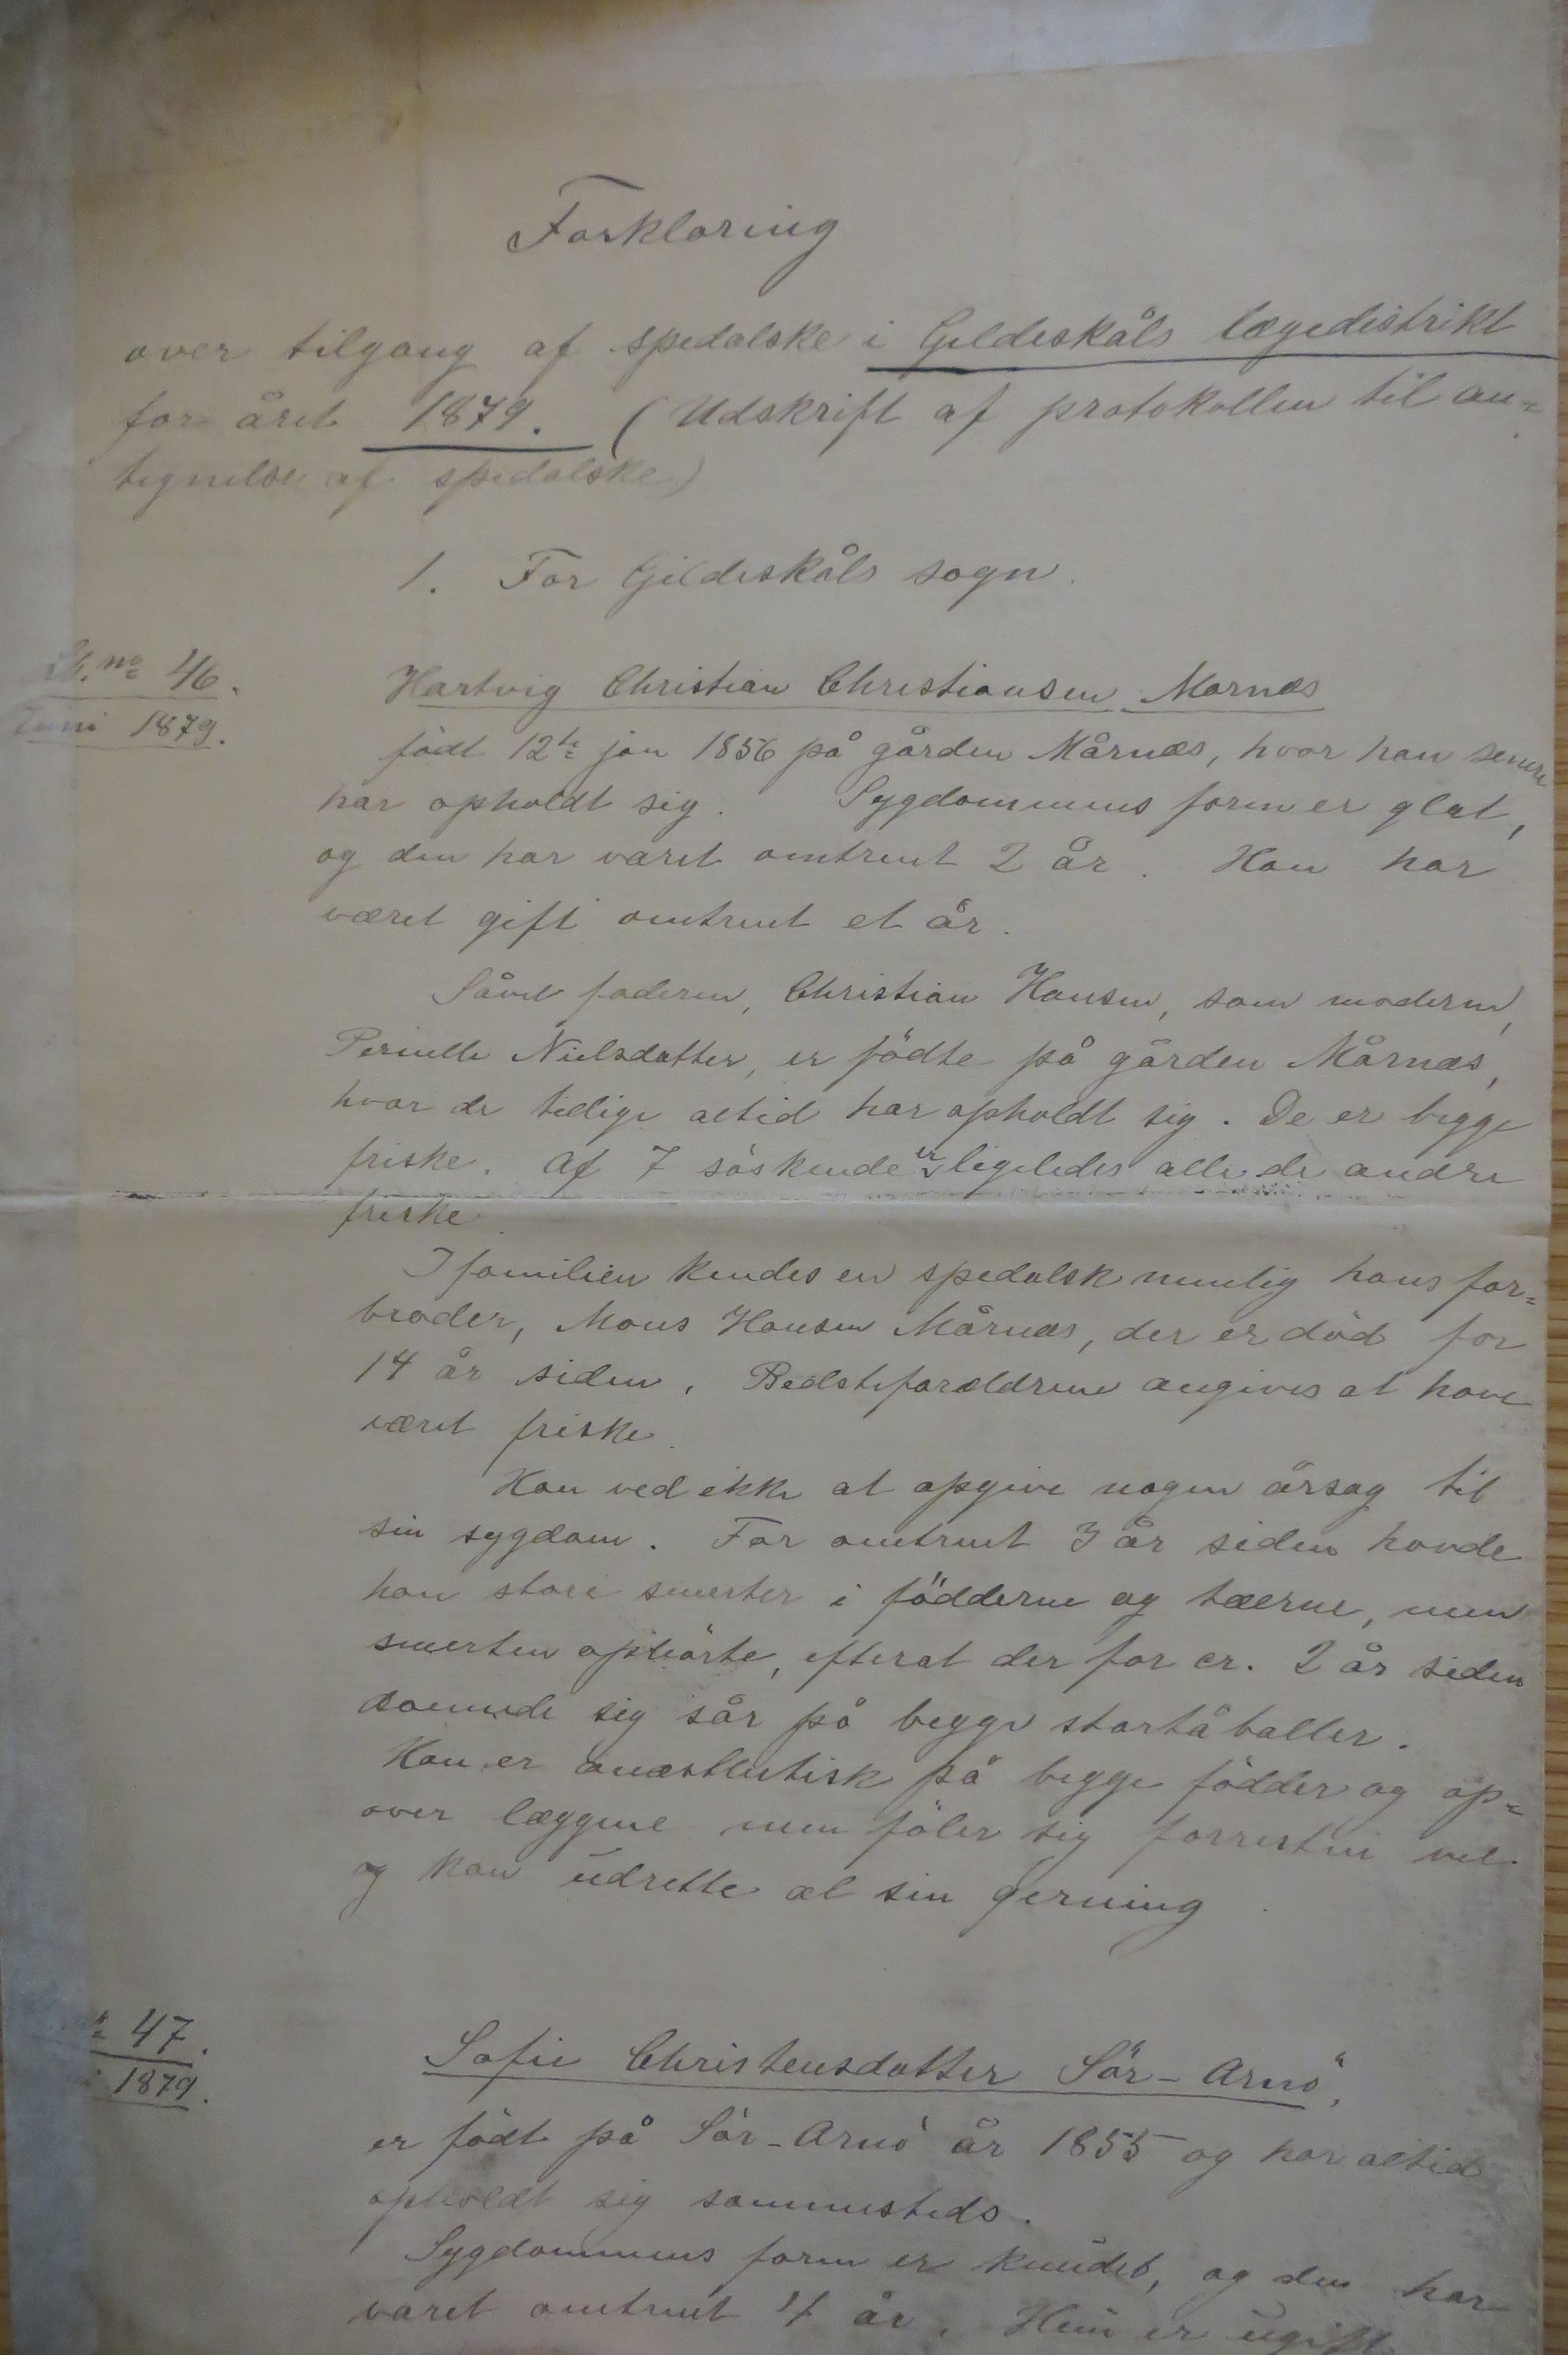 Forklaring
over tilgang af spedalske i Gildeskåls lægedistrikt
for året 1879. (Udskrift af protokollen til an=
tegnelse af spedalske)
1. For Gildeskåls sogn.
no 46.
Juni 1879.
Hartvig Christian Christiansen Mårnæs
född 12te jan 1856 på gården Mårnæs, hvor han senere
har opholdt sig. Sygdommens form er glat,
og den har varet omtrent 2 år. Han har
været gift omtrent et år.
Såvel faderen, Christian Hansen, som moderen,
Pernelle Nielsdatter, er födte på gården Mårnæs,
hvor de altid har opholdt sig. De er begge
friske. Af 7 söskende er ligeledes alle de andre
friske.
I familien kendes en spedalsk nemlig hans far=
broder, Mons Hansen Mårnæs, der er död for
14 år siden. Bedsteforældrene angives at have
været friske.
Han ved ikke at opgive nogen årsag til
sin sygdom. For omtrent 3 år siden havde
han store smerter i födderne og tæerne, men
smerten ophörte, efterat der for cr. 2 år siden
dannede sig sår på begge stortåballer.
Han er anæsthetisk på begge födder og op=
over læggene men föler sig forresten vel
og kan udrette al sin gerning.
47.
1879.
Sofie Christensdatter Sör-Arnö,
er födt på Sör-Arnö år 1855 og har altid
opholdt sig sammesteds.
Sygdommens form er knudet, og den har
varet omtrent 4 år. Hun er ugift.